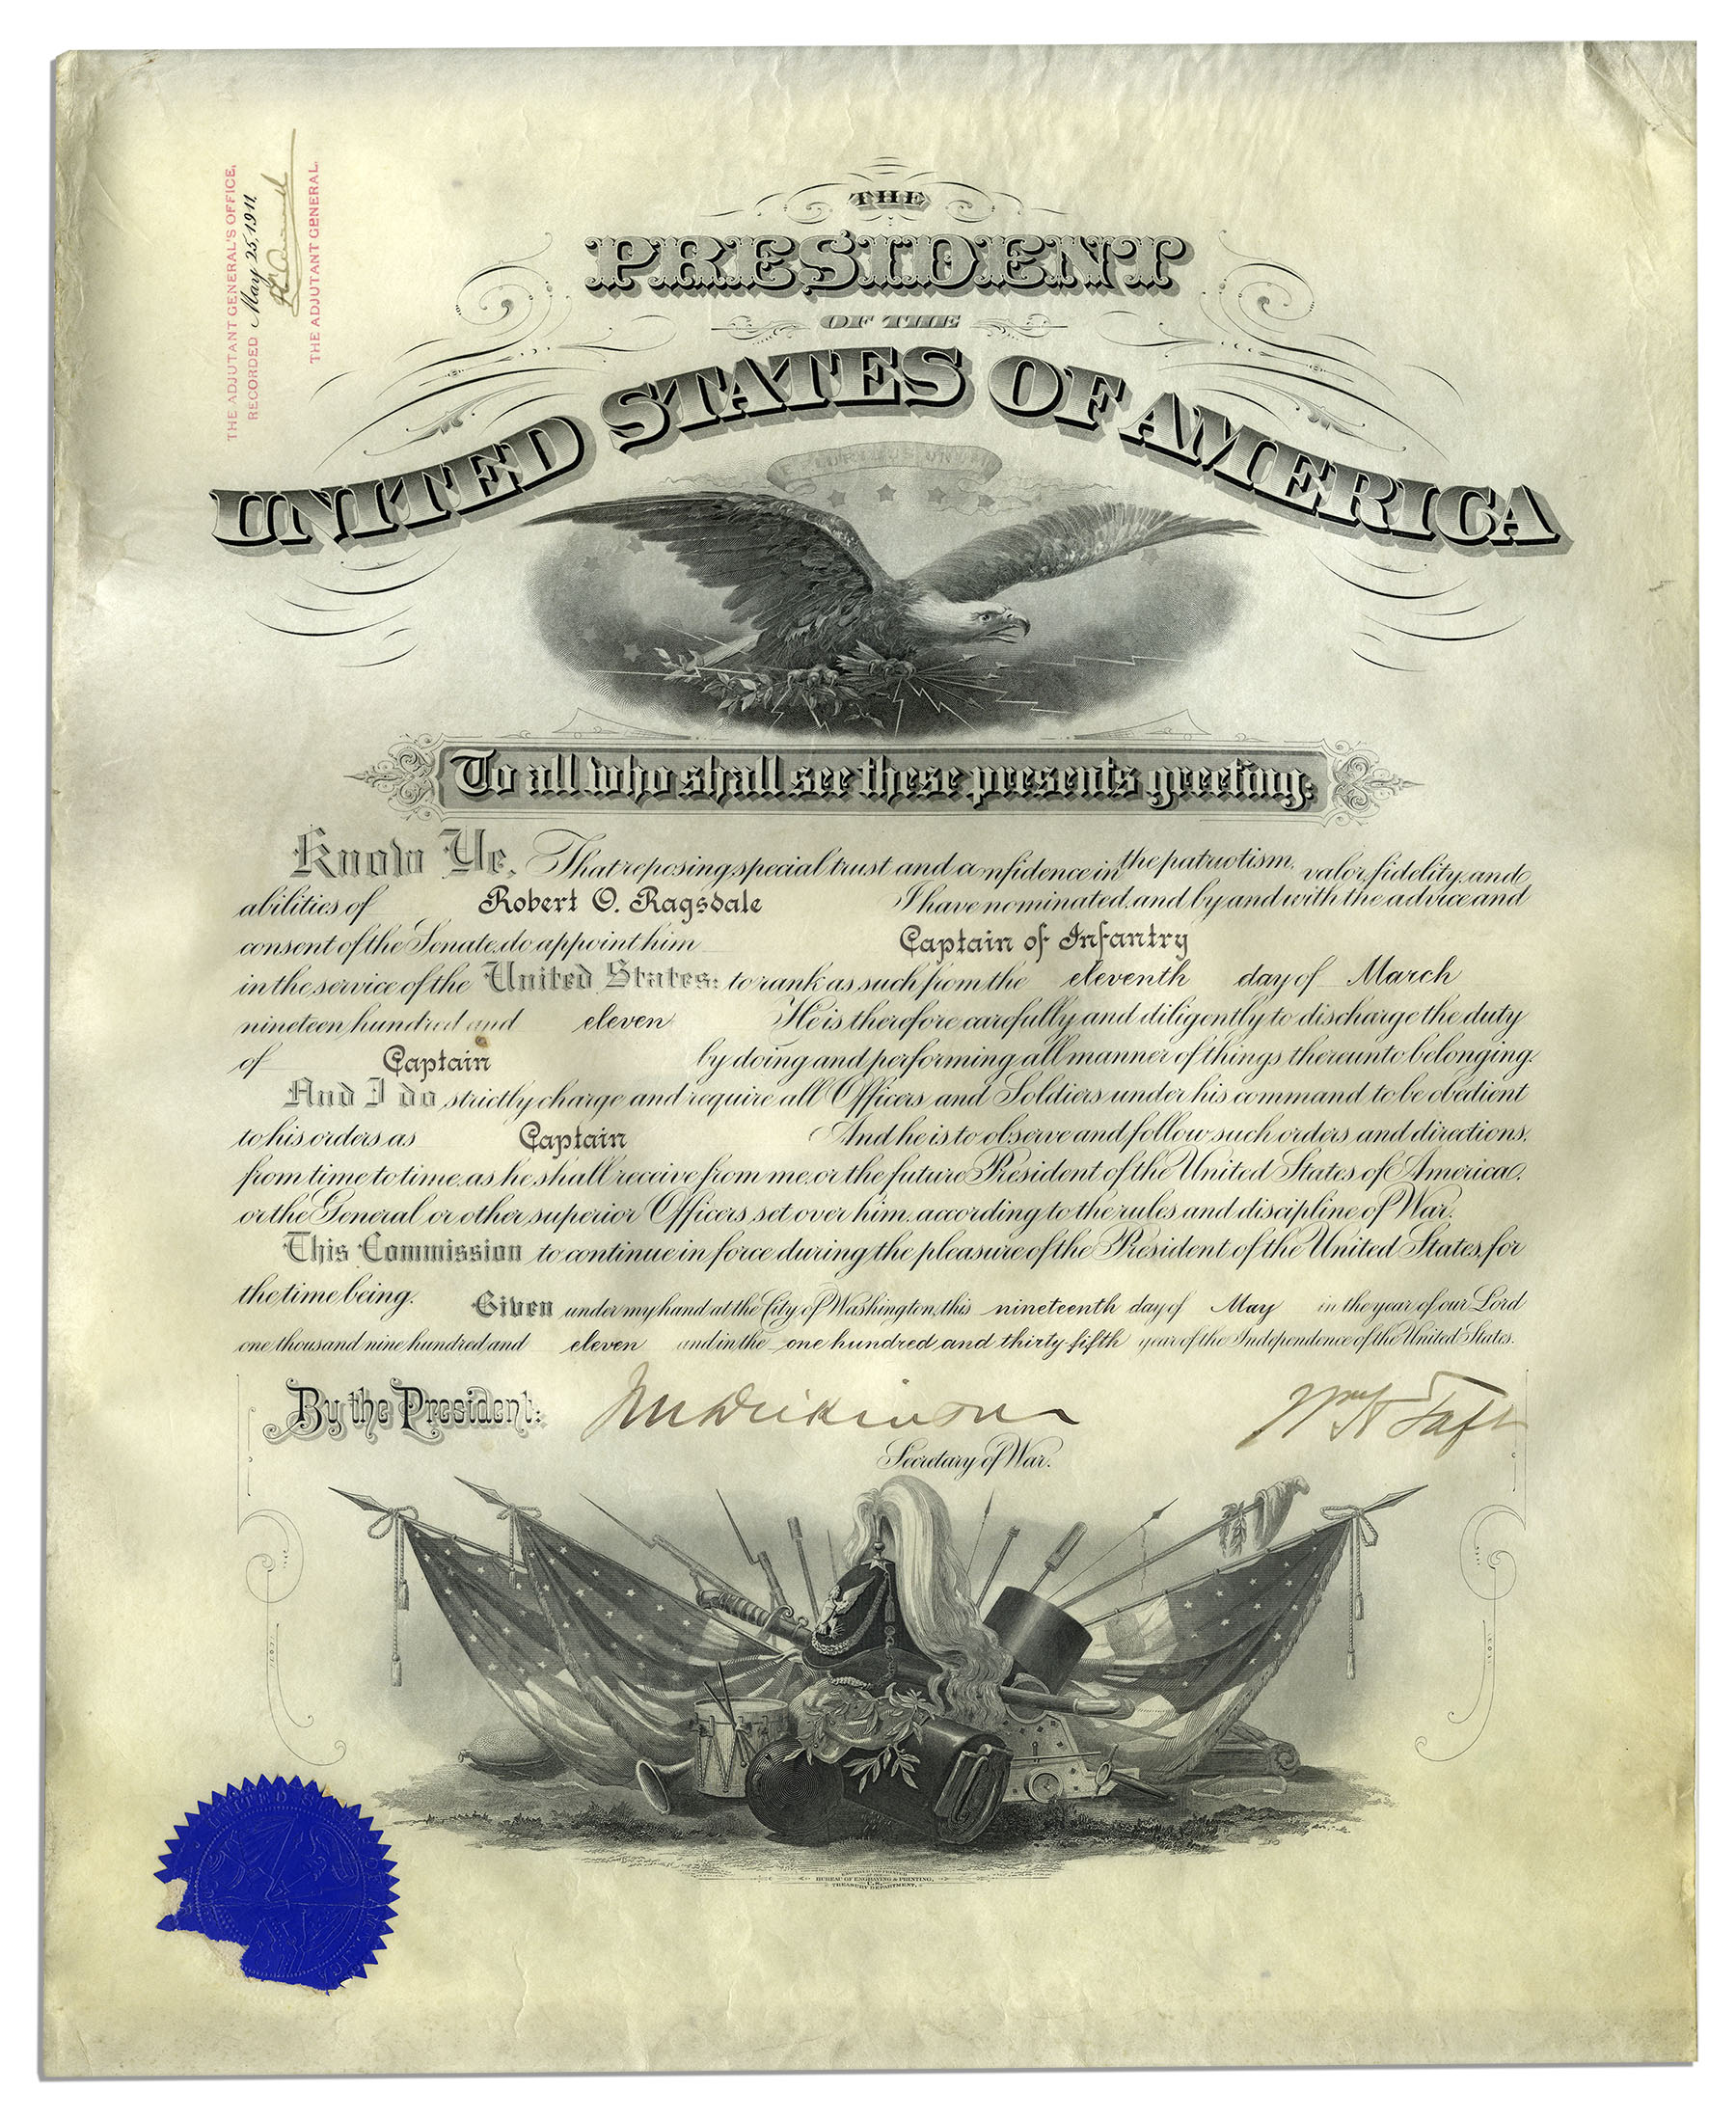 THE ADJUTANT GENERAL'S OFFICE,
RECORDED May 25, 1911
THE ADJUTANT GENERAL.
THE
PRESIDENT
OF THE
UNITED STATES OF AMERICA
E PLURIBUS UNUM
To all who shall see these presents greeting:
Know Ye, That reposing special trust and confidence in the patriotism, valor, fidelity and
abilities of Robert O. Ragsdale I have nominated, and by and with the advice and
consent of the Senate, do appoint him Captain of Infantry
in the service of the United States: to rank as such from the eleventh day of March
nineteen hundred and eleven He is therefore carefully and diligently to discharge the duty
of Captain by doing and performing all manner of things thereunto belonging.
And I do strictly charge and require all Officers and Soldiers under his command to be obedient
to his orders as Captain And he is to observe and follow such orders and directions,
from time to time, as he shall receive from me, or the future President of the United States of America,
or the General or other superior Officers set over him, according to the rules and discipline of War.
This Commission to continue in force during the pleasure of the President of the United States, for
the time being. Given under my hand at the City of Washington, this nineteenth day of May in the year of our Lord
one thousand nine hundred and eleven and in the one hundred and thirty-fifth year of the Independence of the United States.
By the President: J M Dickinson Wm H Taft
Secretary of War.
BUREAU OF ENGRAVING & PRINTING,
U.S.
TREASURY DEPARTMENT.